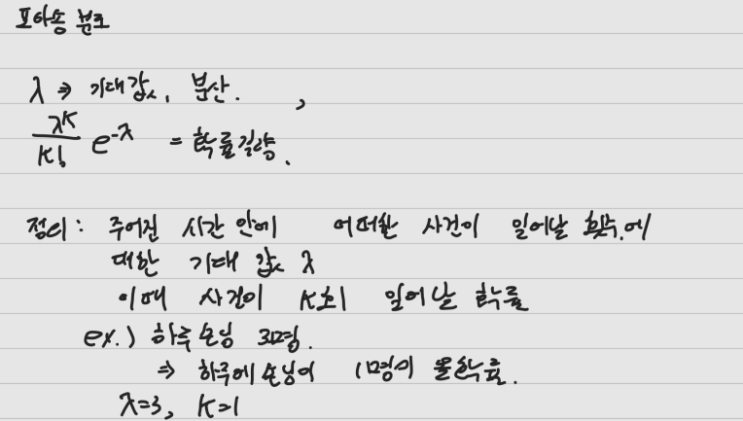 포아송 분포
λ ⇒ 기대값, 분산.
λ^K / K! e^-λ = 확률질량.
정의 : 주어진 시간 안에 어떠한 사건이 일어날 횟수에
대한 기대 값 λ
이때 사건이 K회 일어날 확률
ex.) 하루 손님 3명.
⇒ 하루에 손님이 1명이 올 확률.
λ=3, K=1